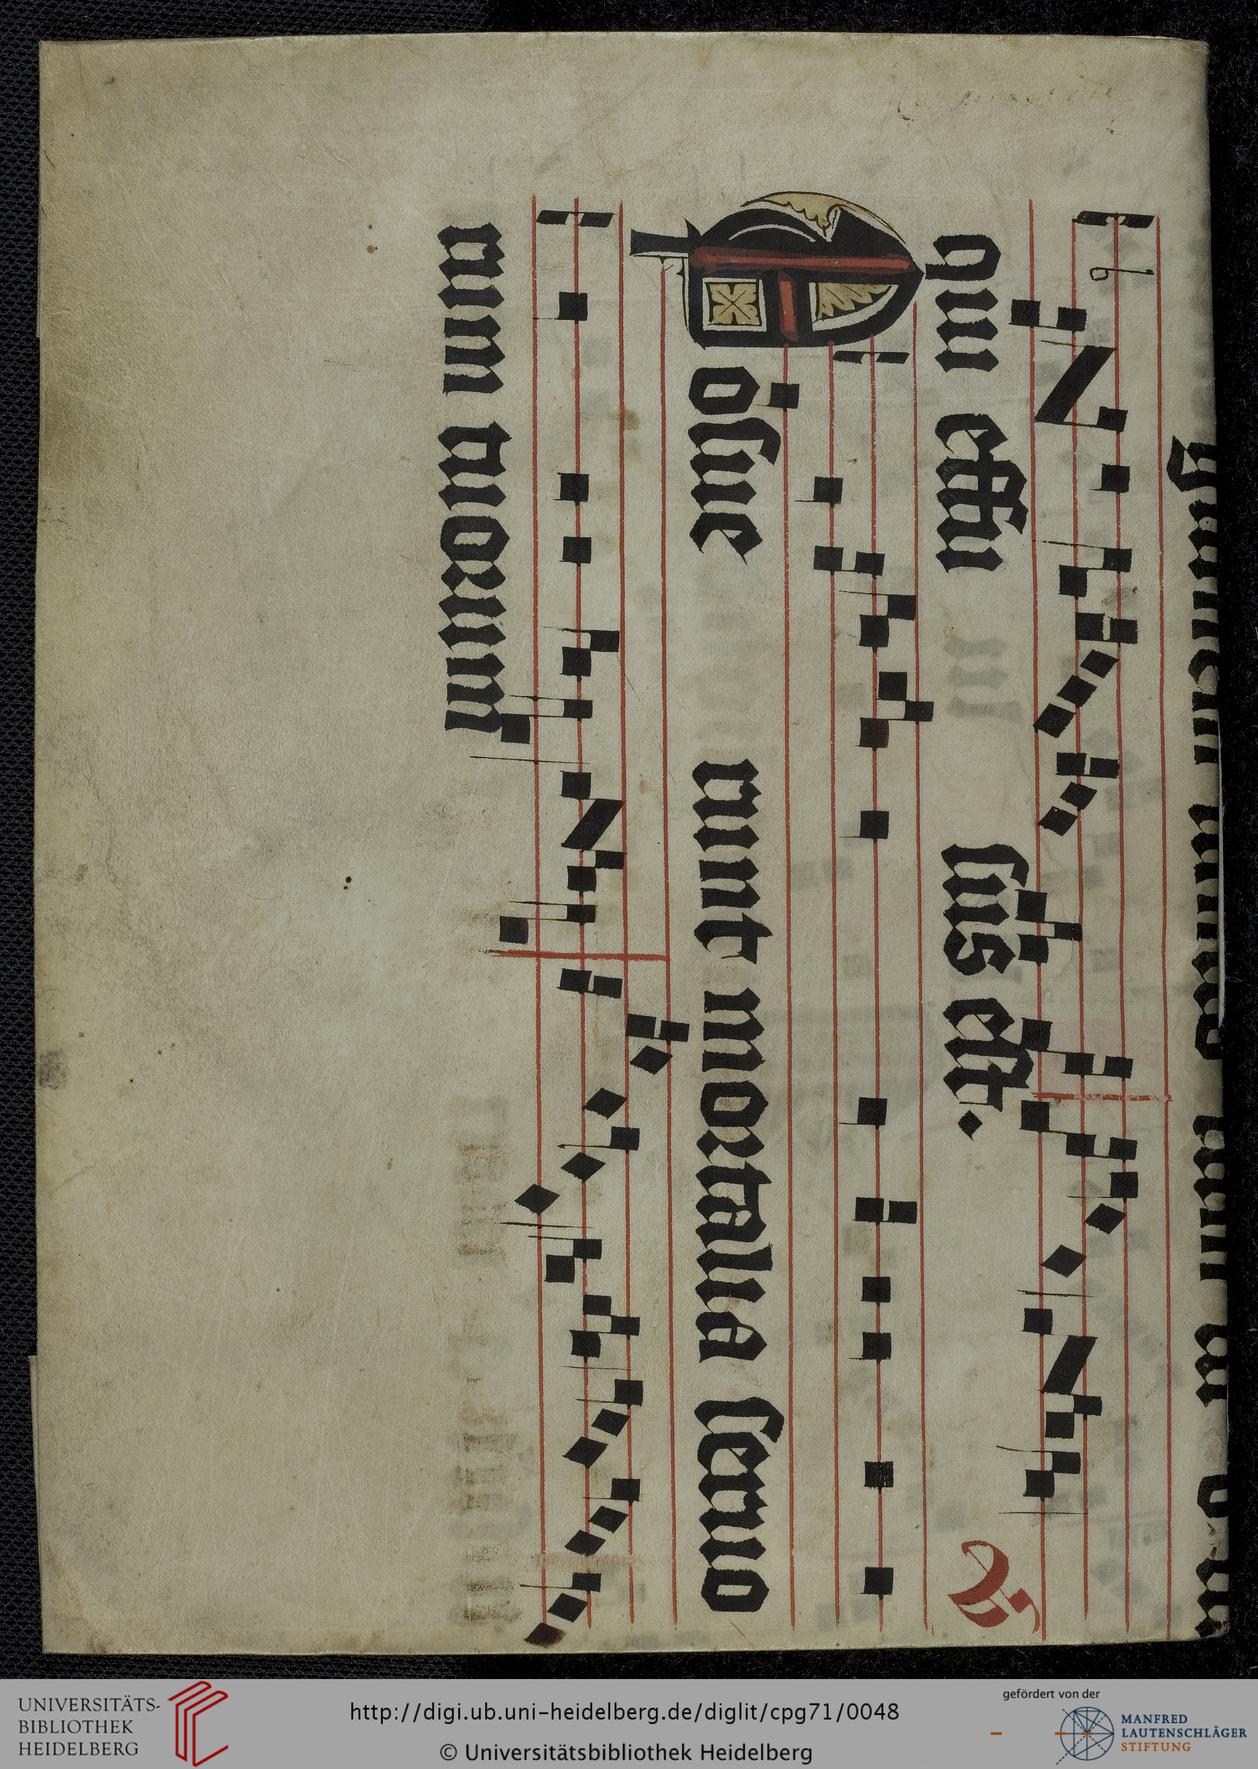 qui effu sus est. V
Posue runt mortalia seruo
rum tuorum
UNIVERSITÄTS-
BIBLIOTHEK
HEIDELBERG
http://digi.ub.uni-heidelberg.de/diglit/cpg71/0048
© Universitätsbibliothek Heidelberg
gefördert von der
MANFRED
LAUTENSCHLÄGER
STIFTUNG